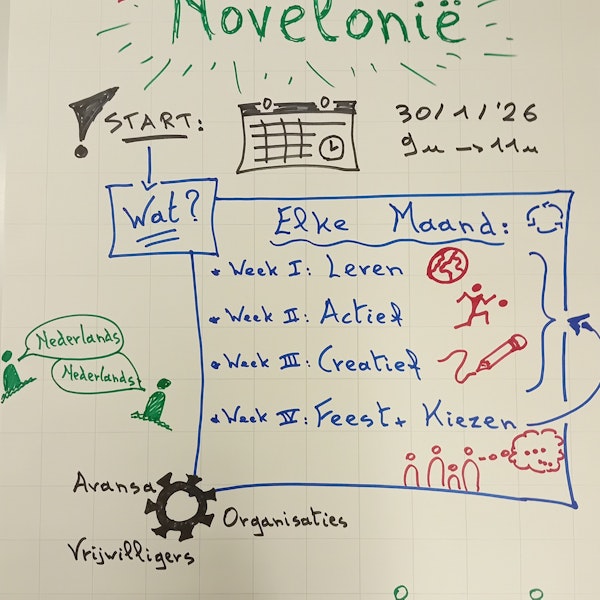 Novelonië
START:
30/1/'26
9u → 11u
Wat?
Elke Maand:
* Week I: Leren
* Week II: Actief
* Week III: Creatief
* Week IV: Feest + Kiezen
Nederlands
Nederlands
Avansa
Organisaties
Vrijwilligers